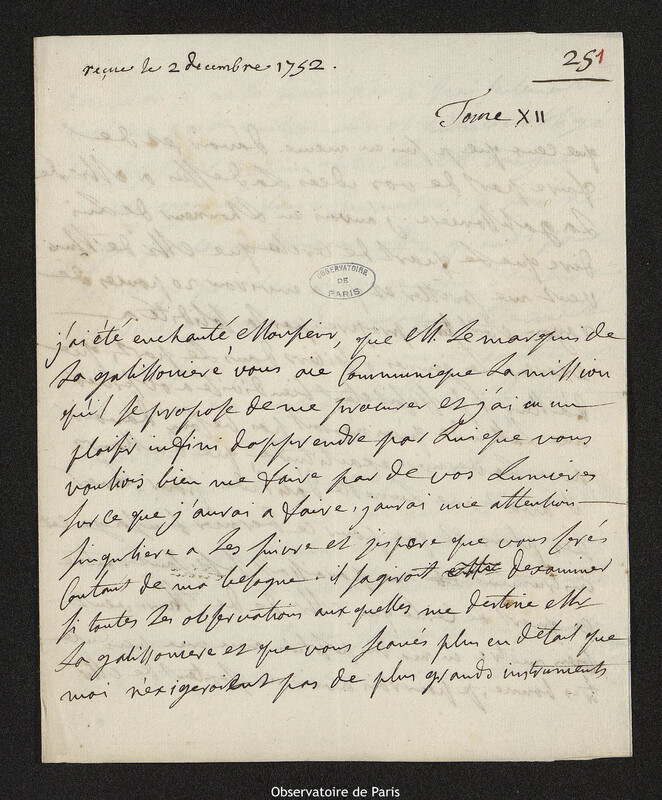 reçue le 2 decembre 1752.
251
Tome XII
OBSERVATOIRE
DE
PARIS
j'ai été enchanté Monsieur, que M. Le marquis de
La galissoniere vous aie Communiqué La mission
qu'il se propose de me procurer et j'ai eu un
plaisir infini d'apprendre par Lui que vous
vouliois bien me faire par de vos Lumieres
sur ce que j'aurai a faire, j'aurai une attention
singuliere a Les suivre et j'espere que vous serés
Contant de ma besogne. il s'agiroit d'examiner
si toutes Les observations auxquelles me destine Mr
La galissoniere et que vous scavés plus en détail que
moi n'exigeroient pas de plus grands instruments
Observatoire de Paris